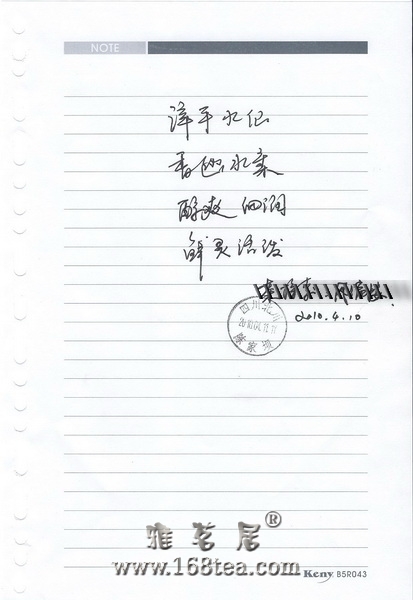 NOTE
漳平水仙
香池水来
醇爽细润
鲜灵活泼
2010.4.10
四川北川
陈家坝
雅茗居®
www.168tea.com
Keny B5R043